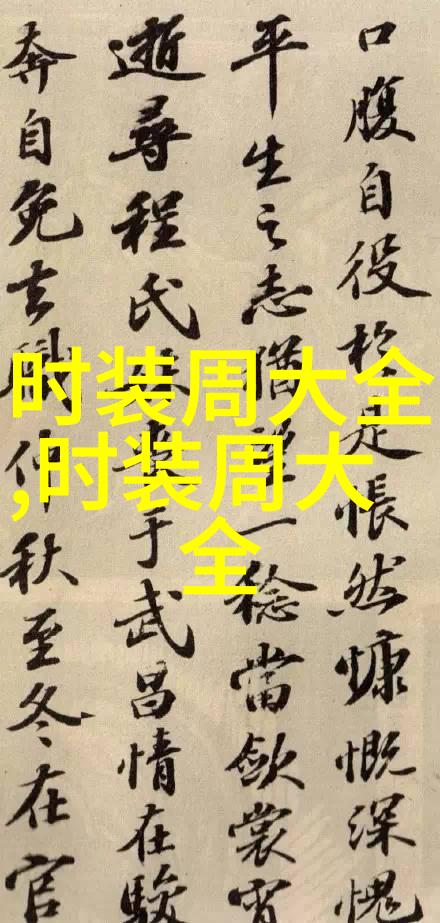 口腹自役於是悵然慷慨深愧
平生之志猶望一稔當歛裳宵
逝尋程氏妹喪于武昌情在駿
奔自免去職仲秋至冬在官
时装周大全
,时装周大
全